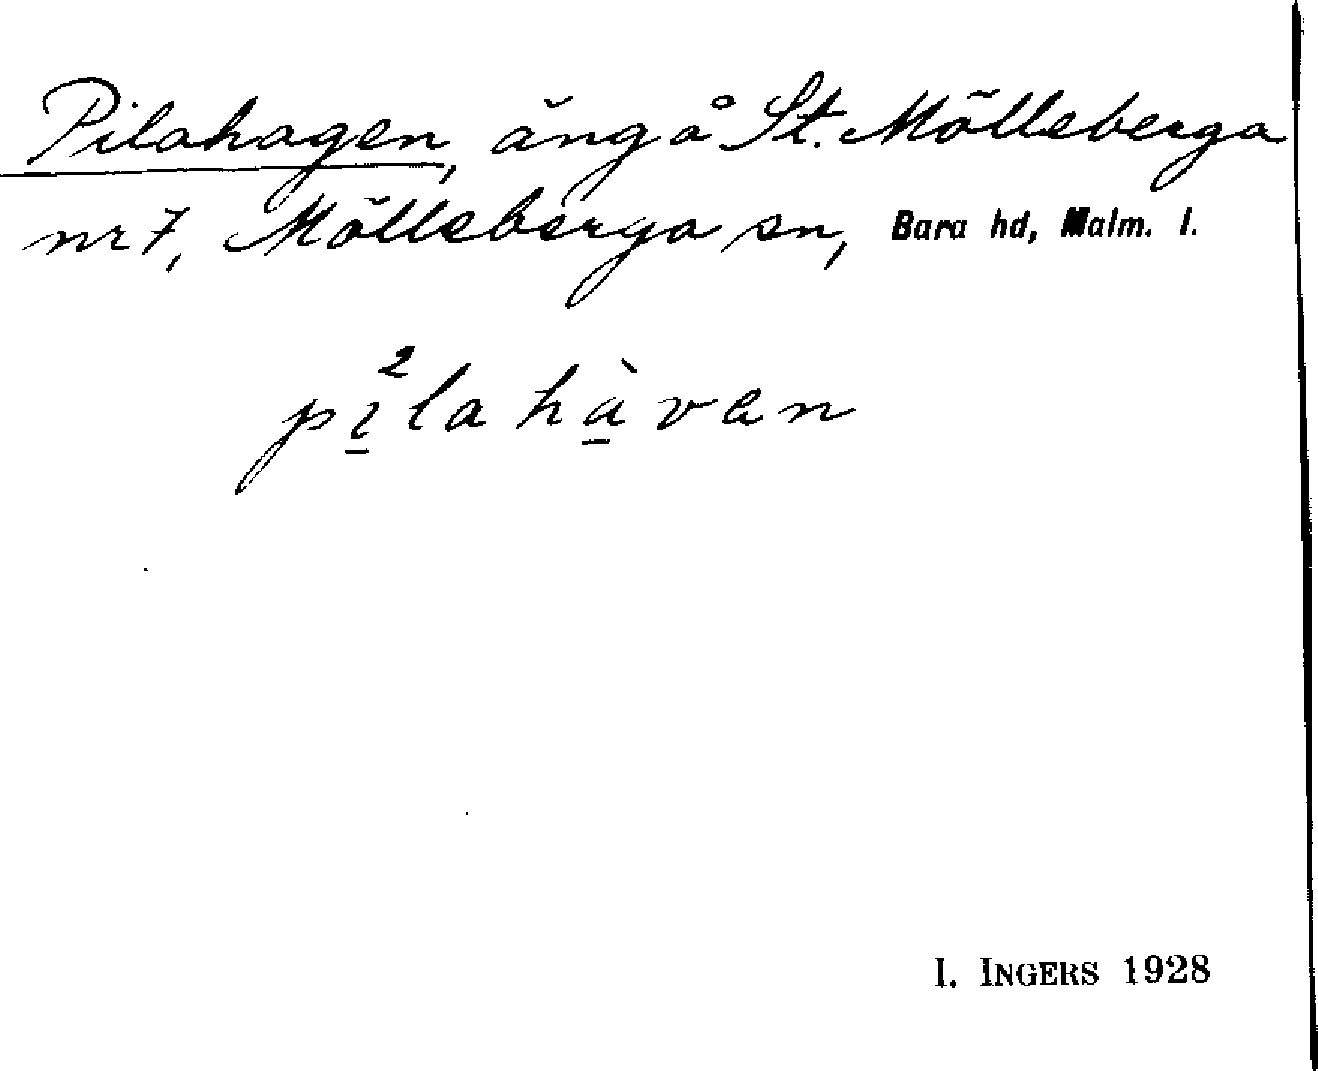 Pilahagen, äng å St. Mölleberga
nr 7, Mölleberga sn, Bara hd, Malm. l.
pi̱²la hà̱van
I. INGERS 1928